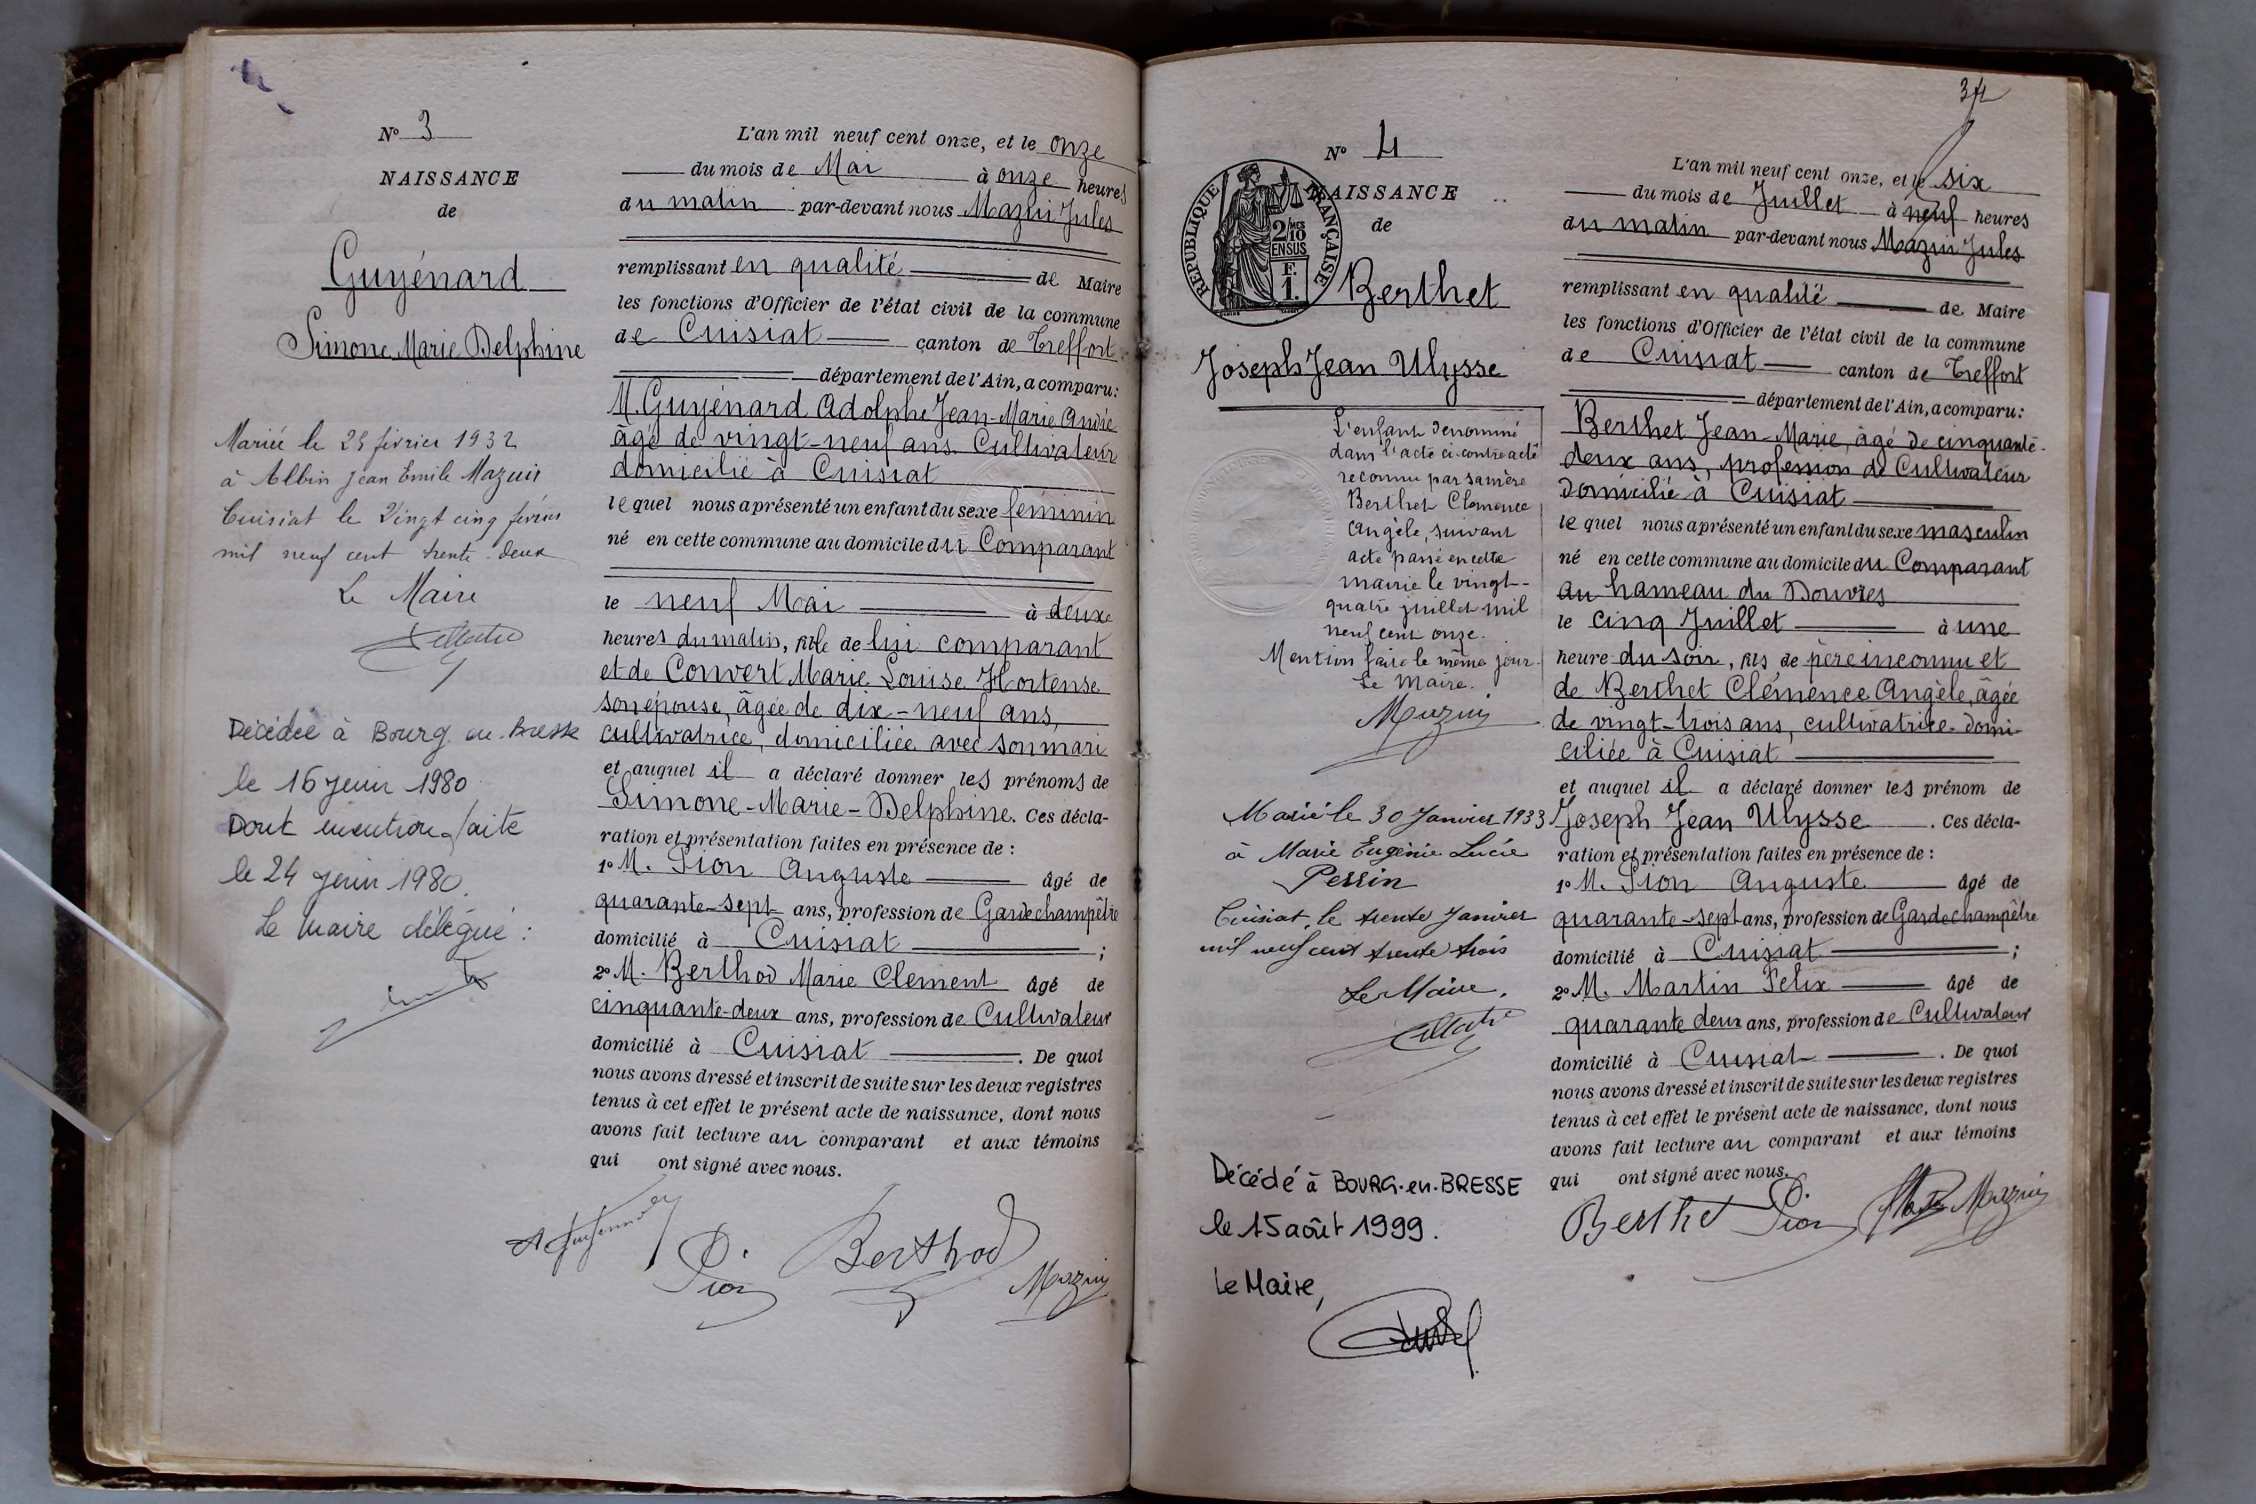 N° 3
NAISSANCE
de
Guyénard
Simone Marie Delphine
Mariée le 25 février 1932
à Albin Jean Emile Mazuir
Cuisiat le Vingt cinq février
mil neuf cent trente deux
Le Maire
Décédée à Bourg en Bresse
le 16 juin 1980
Dont mention faite
le 24 juin 1980.
Le Maire délégué :
L'an mil neuf cent onze, et le onze
du mois de Mai à onze heures
du matin par-devant nous Mazuir Jules
remplissant en qualité de Maire
les fonctions d'Officier de l'état civil de la commune
de Cuisiat canton de Treffort
département de l'Ain, a comparu:
M. Guyénard Adolphe Jean-Marie André
âgé de vingt-neuf ans Cultivateur
domicilié à Cuisiat
lequel nous a présenté un enfant du sexe féminin
né en cette commune au domicile du Comparant
le neuf Mai à deux
heures du matin, fille de lui comparant
et de Convert Marie Louise Hortense
son épouse, âgée de dix-neuf ans,
cultivatrice, domiciliée avec son mari
et auquel il a déclaré donner les prénoms de
Simone-Marie-Delphine. Ces décla-
ration et présentation faites en présence de :
1° M. Pion Auguste âgé de
quarante-sept ans, profession de Garde champêtre
domicilié à Cuisiat ;
2° M. Berthod Marie Clement âgé de
cinquante-deux ans, profession de Cultivateur
domicilié à Cuisiat . De quoi
nous avons dressé et inscrit de suite sur les deux registres
tenus à cet effet le présent acte de naissance, dont nous
avons fait lecture au comparant et aux témoins
qui ont signé avec nous.
Pion Berthod Mazuir
N° 4
RÉPUBLIQUE FRANÇAISE
2/10 MES
EN SUS
F.
1.
NAISSANCE
de
Berthet
Joseph Jean Ulysse
L'enfant dénommé
dans l'acte ci-contre a été
reconnu par sa mère
Berthet Clemence
Angèle, suivant
acte passé en cette
mairie le vingt-
quatre juillet mil
neuf cent onze.
Mention faite le même jour.
Le Maire.
Mazuir
Marié le 30 Janvier 1933
à Marie Eugénie Lucie
Perrin
Cuisiat, le trente Janvier
mil neuf cent trente trois
Le Maire,
Décédé à BOURG-en-BRESSE
le 15 août 1999.
Le Maire,
L'an mil neuf cent onze, et le six
du mois de Juillet à neuf heures
du matin par-devant nous Mazuir Jules
remplissant en qualité de Maire
les fonctions d'Officier de l'état civil de la commune
de Cuisiat canton de Treffort
département de l'Ain, a comparu:
Berthet Jean-Marie, âgé de cinquante-
deux ans, profession de Cultivateur
domicilié à Cuisiat
lequel nous a présenté un enfant du sexe masculin
né en cette commune au domicile du Comparant
au hameau du Douvres
le cinq Juillet à une
heure du soir, fils de père inconnu et
de Berthet Clémence Angèle, âgée
de vingt-trois ans, cultivatrice domi-
ciliée à Cuisiat
et auquel il a déclaré donner les prénom de
Joseph Jean Ulysse . Ces décla-
ration et présentation faites en présence de :
1° M. Pion Auguste âgé de
quarante-sept ans, profession de Garde champêtre
domicilié à Cuisiat ;
2° M. Martin Felix âgé de
quarante deux ans, profession de Cultivateur
domicilié à Cuisiat . De quoi
nous avons dressé et inscrit de suite sur les deux registres
tenus à cet effet le présent acte de naissance, dont nous
avons fait lecture au comparant et aux témoins
qui ont signé avec nous.
Berthet Pion Mazuir